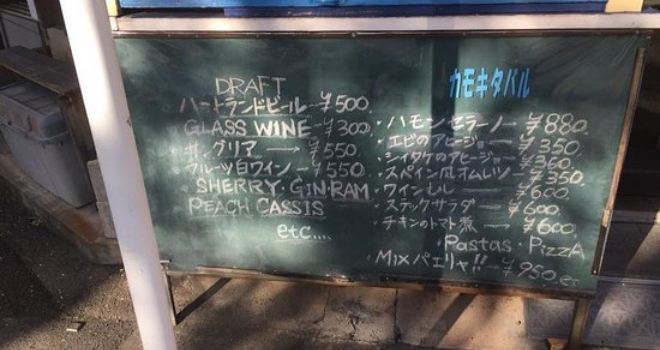 DRAFT
ハートランドビール ¥500.
GLASS WINE ¥300.
サングリア ¥550
フルーツ白ワイン ¥550.
SHERRY. GIN. RAM
PEACH CASSIS
etc....
カモキタバル
・ハモンセラーノ ¥880.
・エビのアヒージョ ¥350
・シイタケのアヒージョ ¥360.
・スペイン風オムレツ ¥350
・ワインムル ¥600.
・スティックサラダ ¥600.
・チキンのトマト煮 ¥600.
Pastas・PizzA
Mixパエリャ!! ¥950. etc